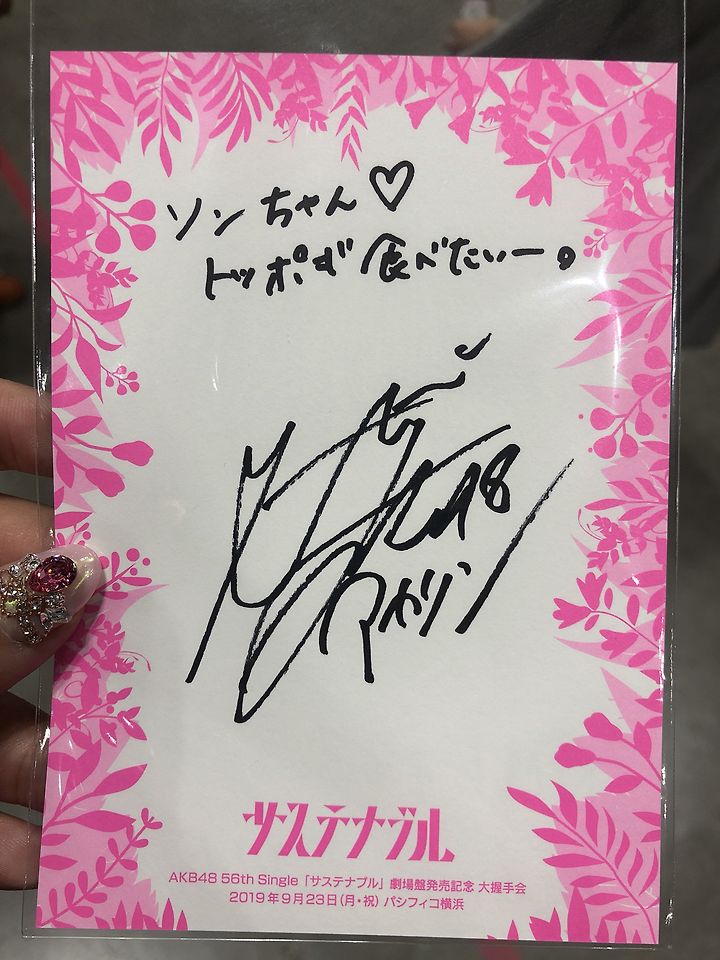 ソンちゃん♡
トッポが食べたいー。
アカリン
サステナブル
AKB48 56th Single「サステナブル」劇場盤発売記念 大握手会
2019年9月23日(月・祝) パシフィコ横浜